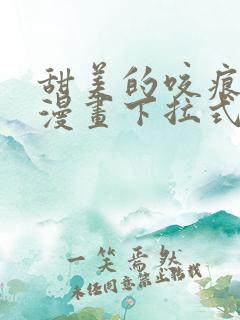 甜美的咬痕
漫畫下拉式
一笑焉然
未经同意禁止转载